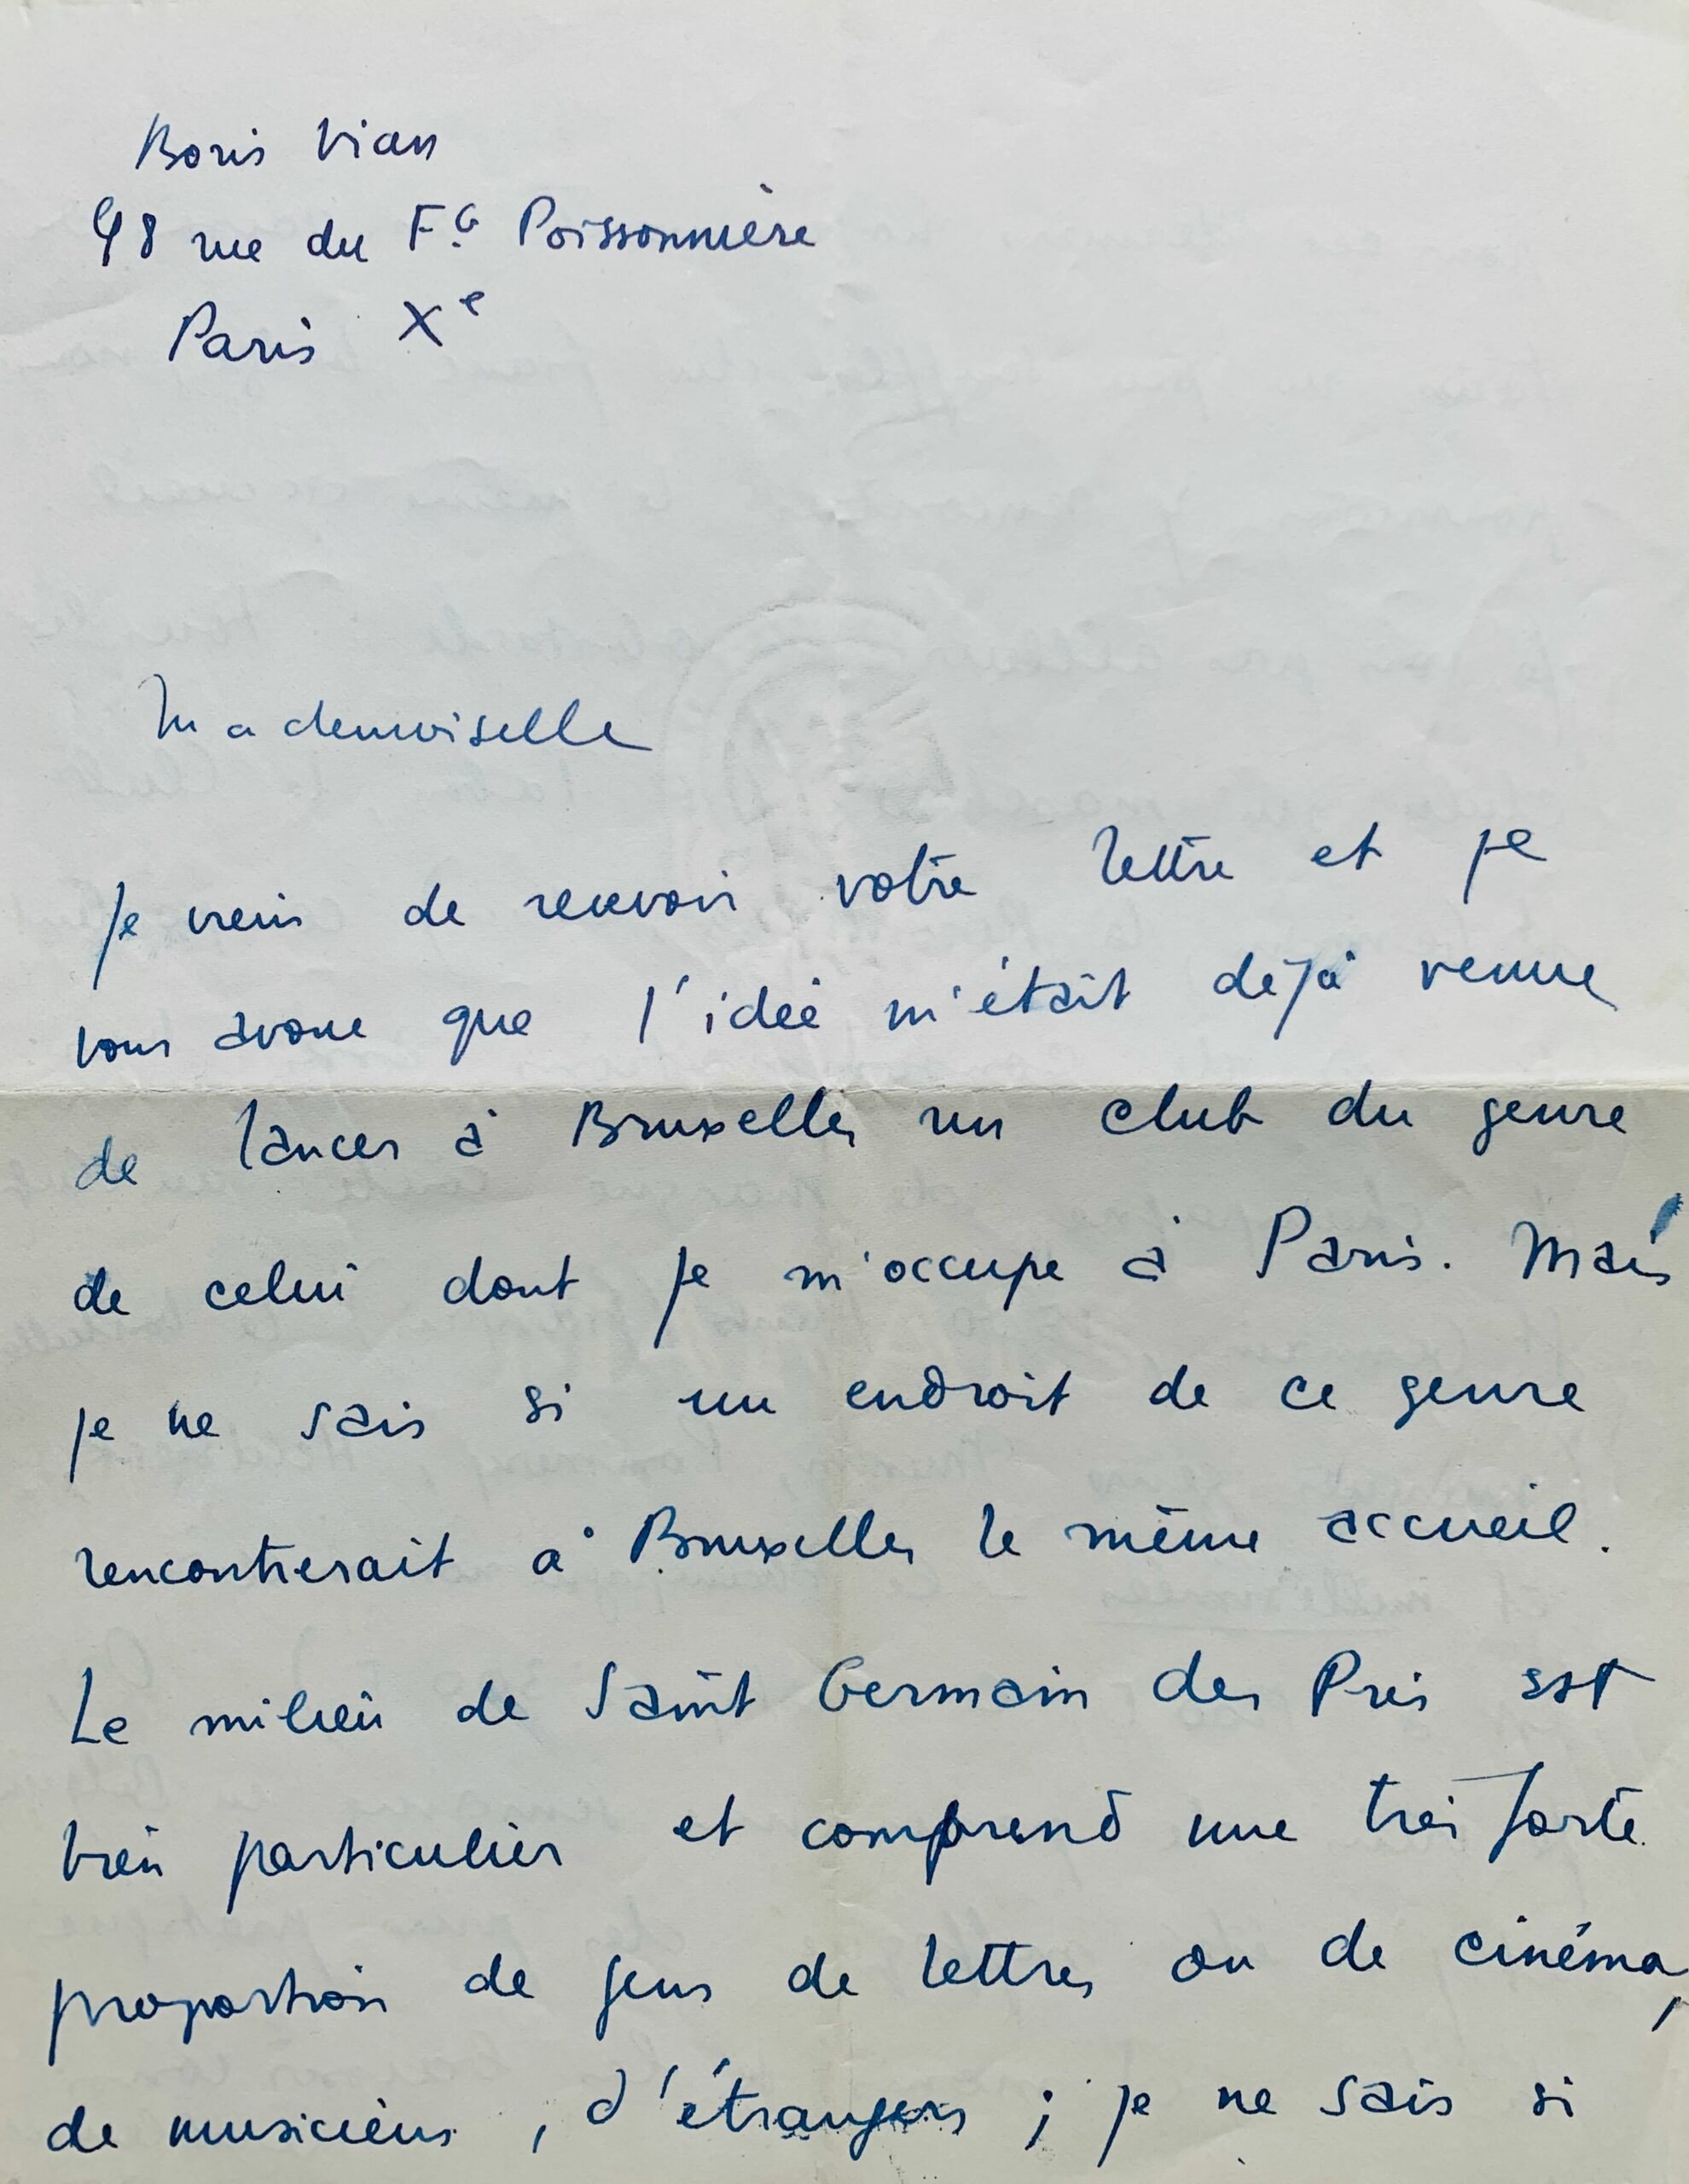 Boris Vian
98 rue du Fg Poissonnière
Paris Xe
Mademoiselle
Je viens de recevoir votre lettre et je
vous avoue que l'idée m'était déjà venue
de lancer à Bruxelles un club du genre
de celui dont je m'occupe à Paris. Mais
je ne sais si un endroit de ce genre
rencontrerait à Bruxelles le même accueil.
Le milieu de Saint Germain des Prés est
bien particulier et comprend une très forte
proportion de gens de lettres ou de cinéma,
de musiciens, d'étrangers ; je ne sais si